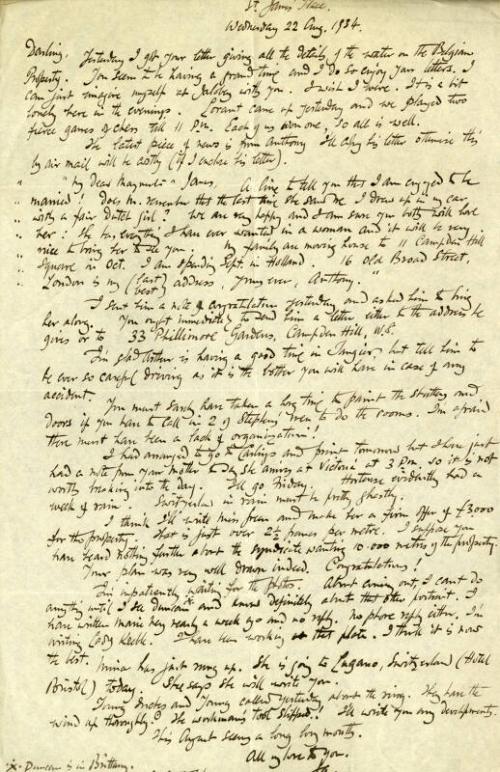 St. James' Place.
Wednesday 22 Aug. 1934.
Darling, Yesterday I got your letter giving all the details of the water on the Belgian
Property. You seem to be having a grand time and I do so enjoy your letters. I
can just imagine myself at with you. I wish I were. It is a bit
lonely here in the evenings. came up yesterday and we played two
fierce games of chess till 11 P.m. Each of us won one, so all is well.
The latest piece of news is from Anthony I'll copy his letter otherwise this
by air mail will be costly (if I enclose his letter).
" "My dear " James, A line to tell you that I am engaged to be
" married! Does M. remember that the last time she saw me I drove up in my car
" with a fair Dutch girl? We are very happy and I am sure you both will love
" her: She has everything I have ever wanted in a woman and it will be very
" nice to bring her to see you. My family are moving house to 11 Campden Hill
" Square in Oct. I am spending Sept. in Holland. 16 Old Broad Street,
" London is my (last best) address, Yours ever, Anthony."
I sent him a note of congratulation yesterday and asked him to bring
her along. You ought immediately to send him a letter either to the address he
gives or to 33 Phillimore Gardens, Campden Hill, W.8.
I'm glad is having a good time in Tangier but tell him to
be ever so careful driving as it is the bother you will have in case of any
accident.
You must surely have taken a long time to paint the shutters and
doors if you have to call in 2 of Stephens' men to do the rooms. I'm afraid
there must have been a lack of organization!
I had arranged to go to and print tomorrow but I have just
had a note from your Mother to say she arrives at Victoria at 3 P.m. so it is not
worth breaking into the day. I'll go Friday. evidently had a
week of rain. Switzerland in rain must be pretty ghastly.
I think I'll write Miss and make her a firm offer of £3,000
for the property. That is just over 2½ francs per metre. I suppose you
have heard nothing further about the syndicate wanting 10.000 metres of the property.
Your plan was very well drawn indeed. Congratulations!
I'm impatiently waiting for the photos. About coming out, I can't do
anything until I see Duncan x and know definitely about that other portrait. I
have written Marie very nearly a week ago and no reply. No phone reply either. I'm
writing Lady Keeble. I have been working at this plate. I think it is now
the best. has just rung up. She is going to Lugano, Switzerland (Hotel
Bristol) today. She says she will write you.
Young and Young called yesterday about the ring. They have the
wind up thoroughly. The workman's tool slipped! I'll write you any developments.
This August seems a long long month.
All my love to you.
x. Duncan is in Brittany.